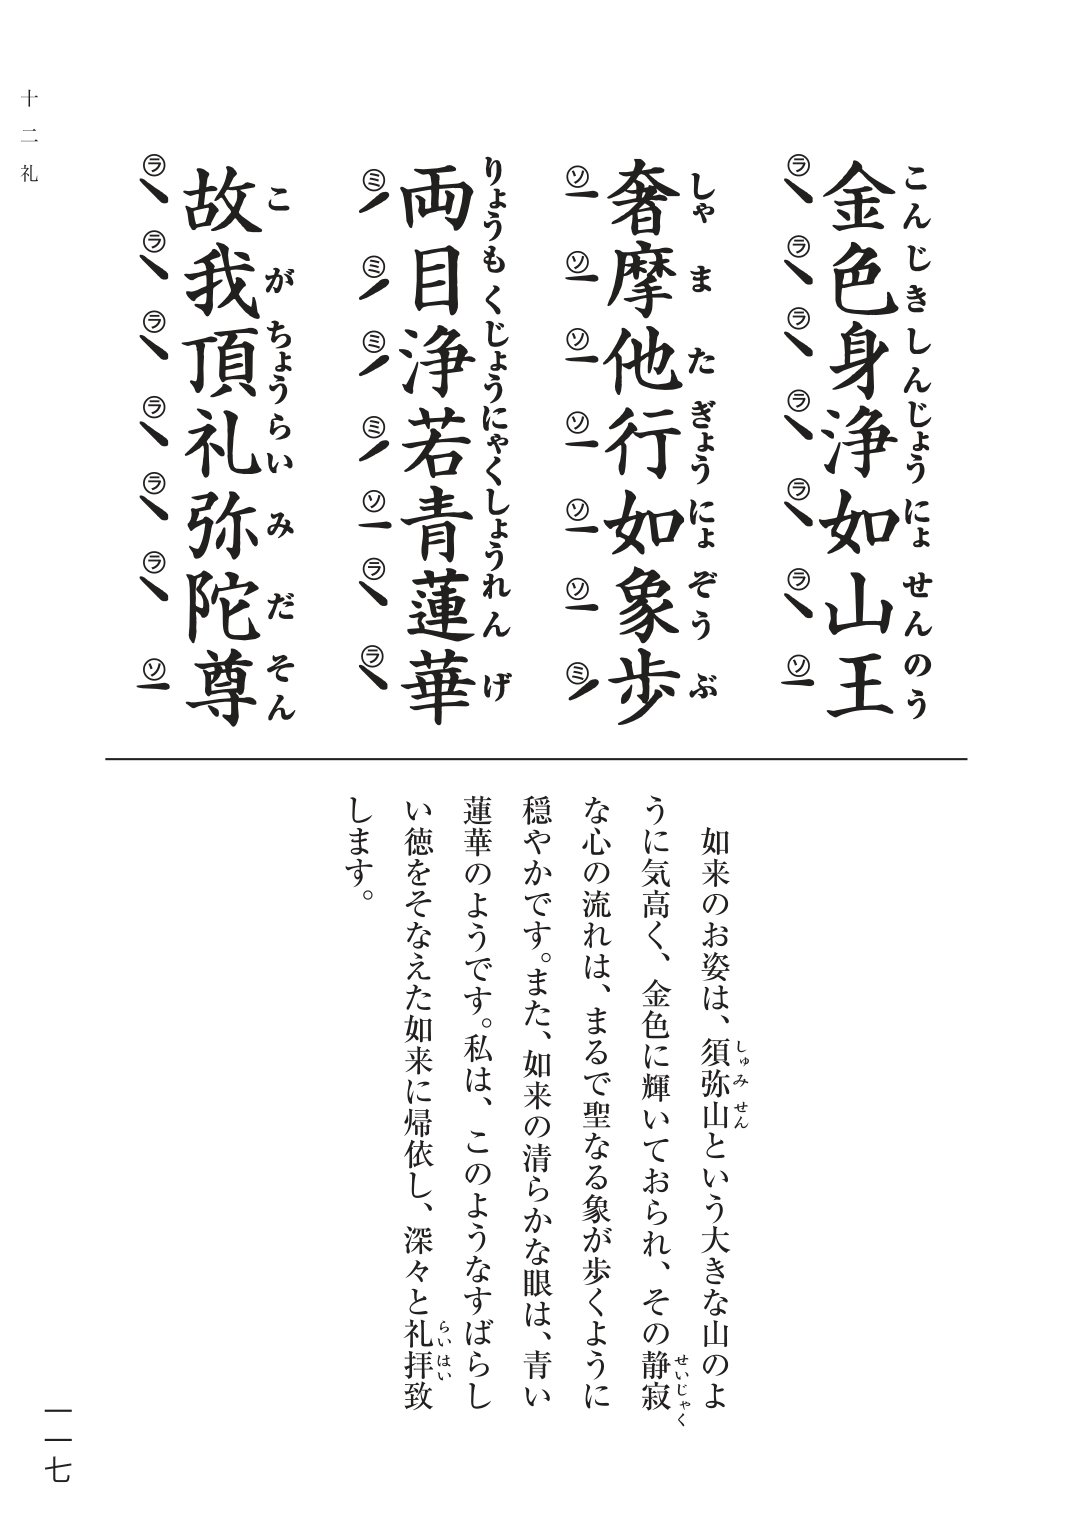 十二礼
金色身浄如山王
こんじきしんじょうにょせんのう
ララララララソ
奢摩他行如象歩
しゃまたぎょうにょぞうぶ
ソソソソソソミ
両目浄若青蓮華
りょうもくじょうにゃくしょうれんげ
ミミミミソララ
故我頂礼弥陀尊
こがちょうらいみだそん
ララララララソ
如来のお姿は、須弥山という大きな山のよ
しゅみせん
うに気高く、金色に輝いておられ、その静寂
せいじゃく
な心の流れは、まるで聖なる象が歩くように
穏やかです。また、如来の清らかな眼は、青い
蓮華のようです。私は、このようなすばらし
い徳をそなえた如来に帰依し、深々と礼拝致
らいはい
します。
一一七